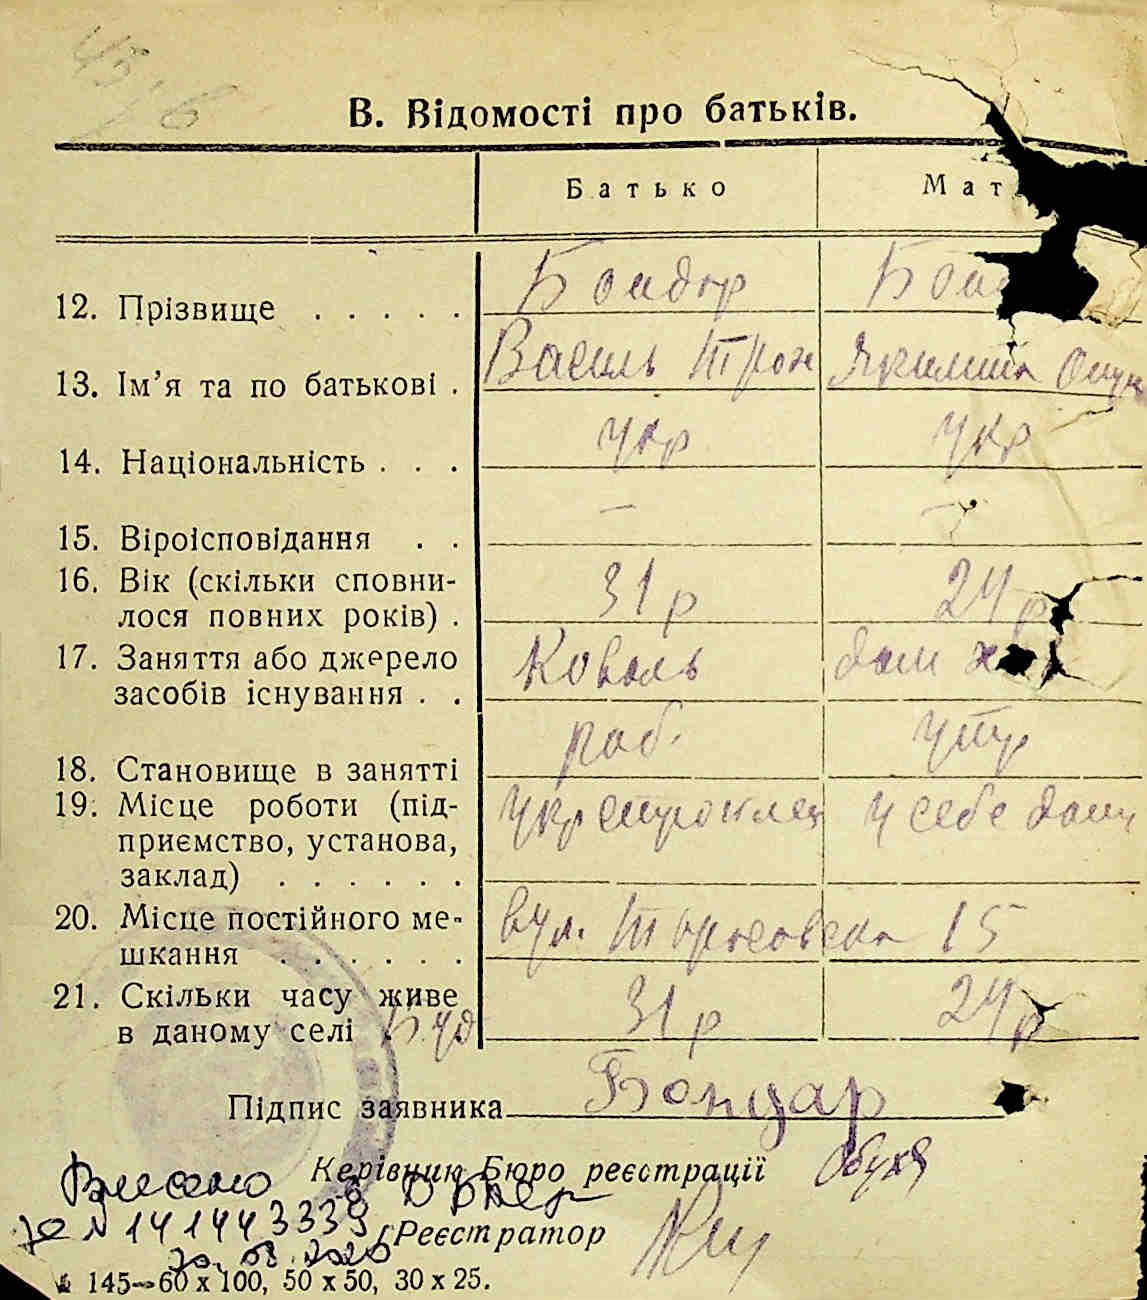 В. Відомості про батьків.
Батько Мат
12. Прізвище . . . . . Бондар Бон
13. Ім’я та по батькові . Василь Троф
14. Національність . . . укр укр
15. Віроісповідання . . — —
16. Вік (скільки сповни-
лося повних років) . 31 р 24 р
17. Заняття або джерело
засобів існування . . Коваль дом
18. Становище в занятті роб. утр
19. Місце роботи (під-
приємство, установа,
заклад) . . . . . . у себе дому
20. Місце постійного ме-
шкання . . . . . . вул. 15
21. Скільки часу живе
в даному селі Буд 31 р 24 р
Підпис заявника Бондар
Керівник Бюро реєстрації
Внесено в ДРАЦС
Реєстратор
за № 141443339
145—60 х 100, 50 х 50, 30 х 25.